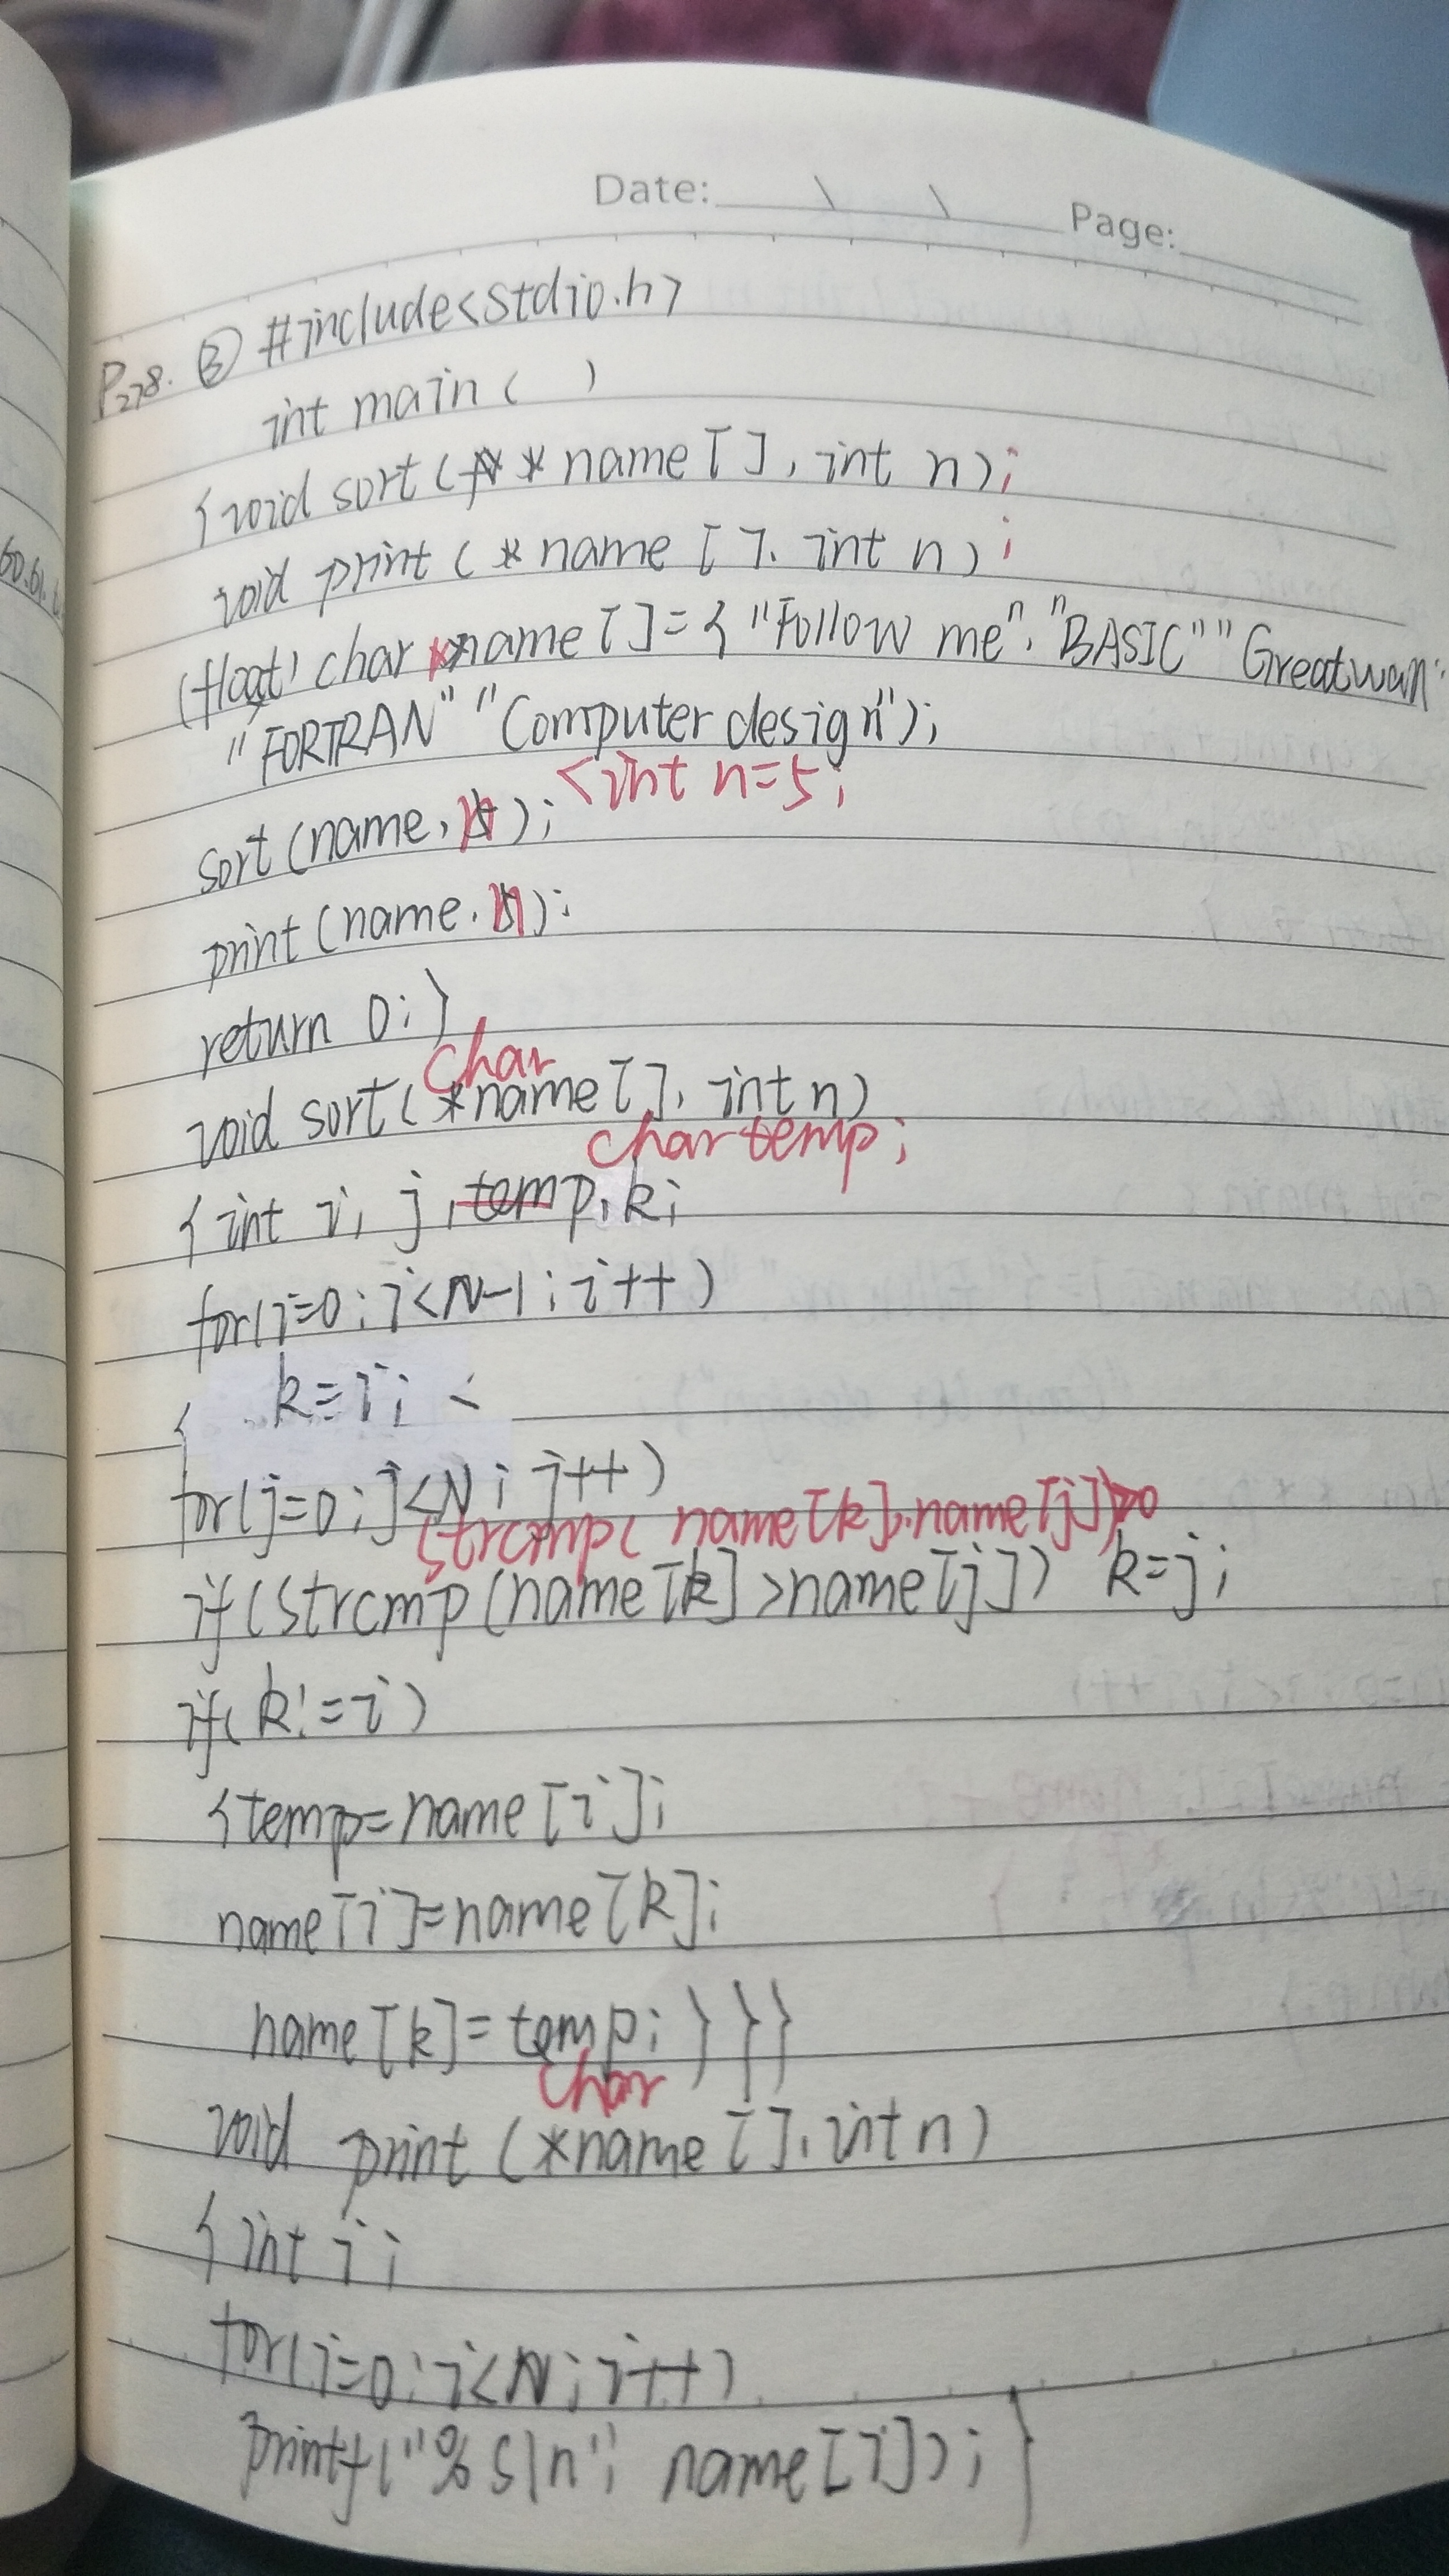 Date: \ \ Page:
P278. ③ #include<stdio.h>
int main( )
{void sort(* name[], int n);
void print(*name[], int n);
(float) char *name[]={"Follow me","BASIC""Greatwall"
"FORTRAN""Computer design");
<int n=5;
sort(name,n);
print(name,n);
return 0;}
char
void sort(*name[], int n)
char temp;
{int i, j, temp, k;
for(i=0;i<N-1;i++)
{ k=i; <
for(j=0;j<N;j++)
strcmp(name[k],name[j])>0
if(strcmp(name[k]>name[j]) k=j;
if(k!=i)
{temp=name[i];
name[i]=name[k];
name[k]=temp;}}}
char
void print(*name[], int n)
{int i;
for(i=0;i<N;i++)
printf("%s\n", name[i]);}